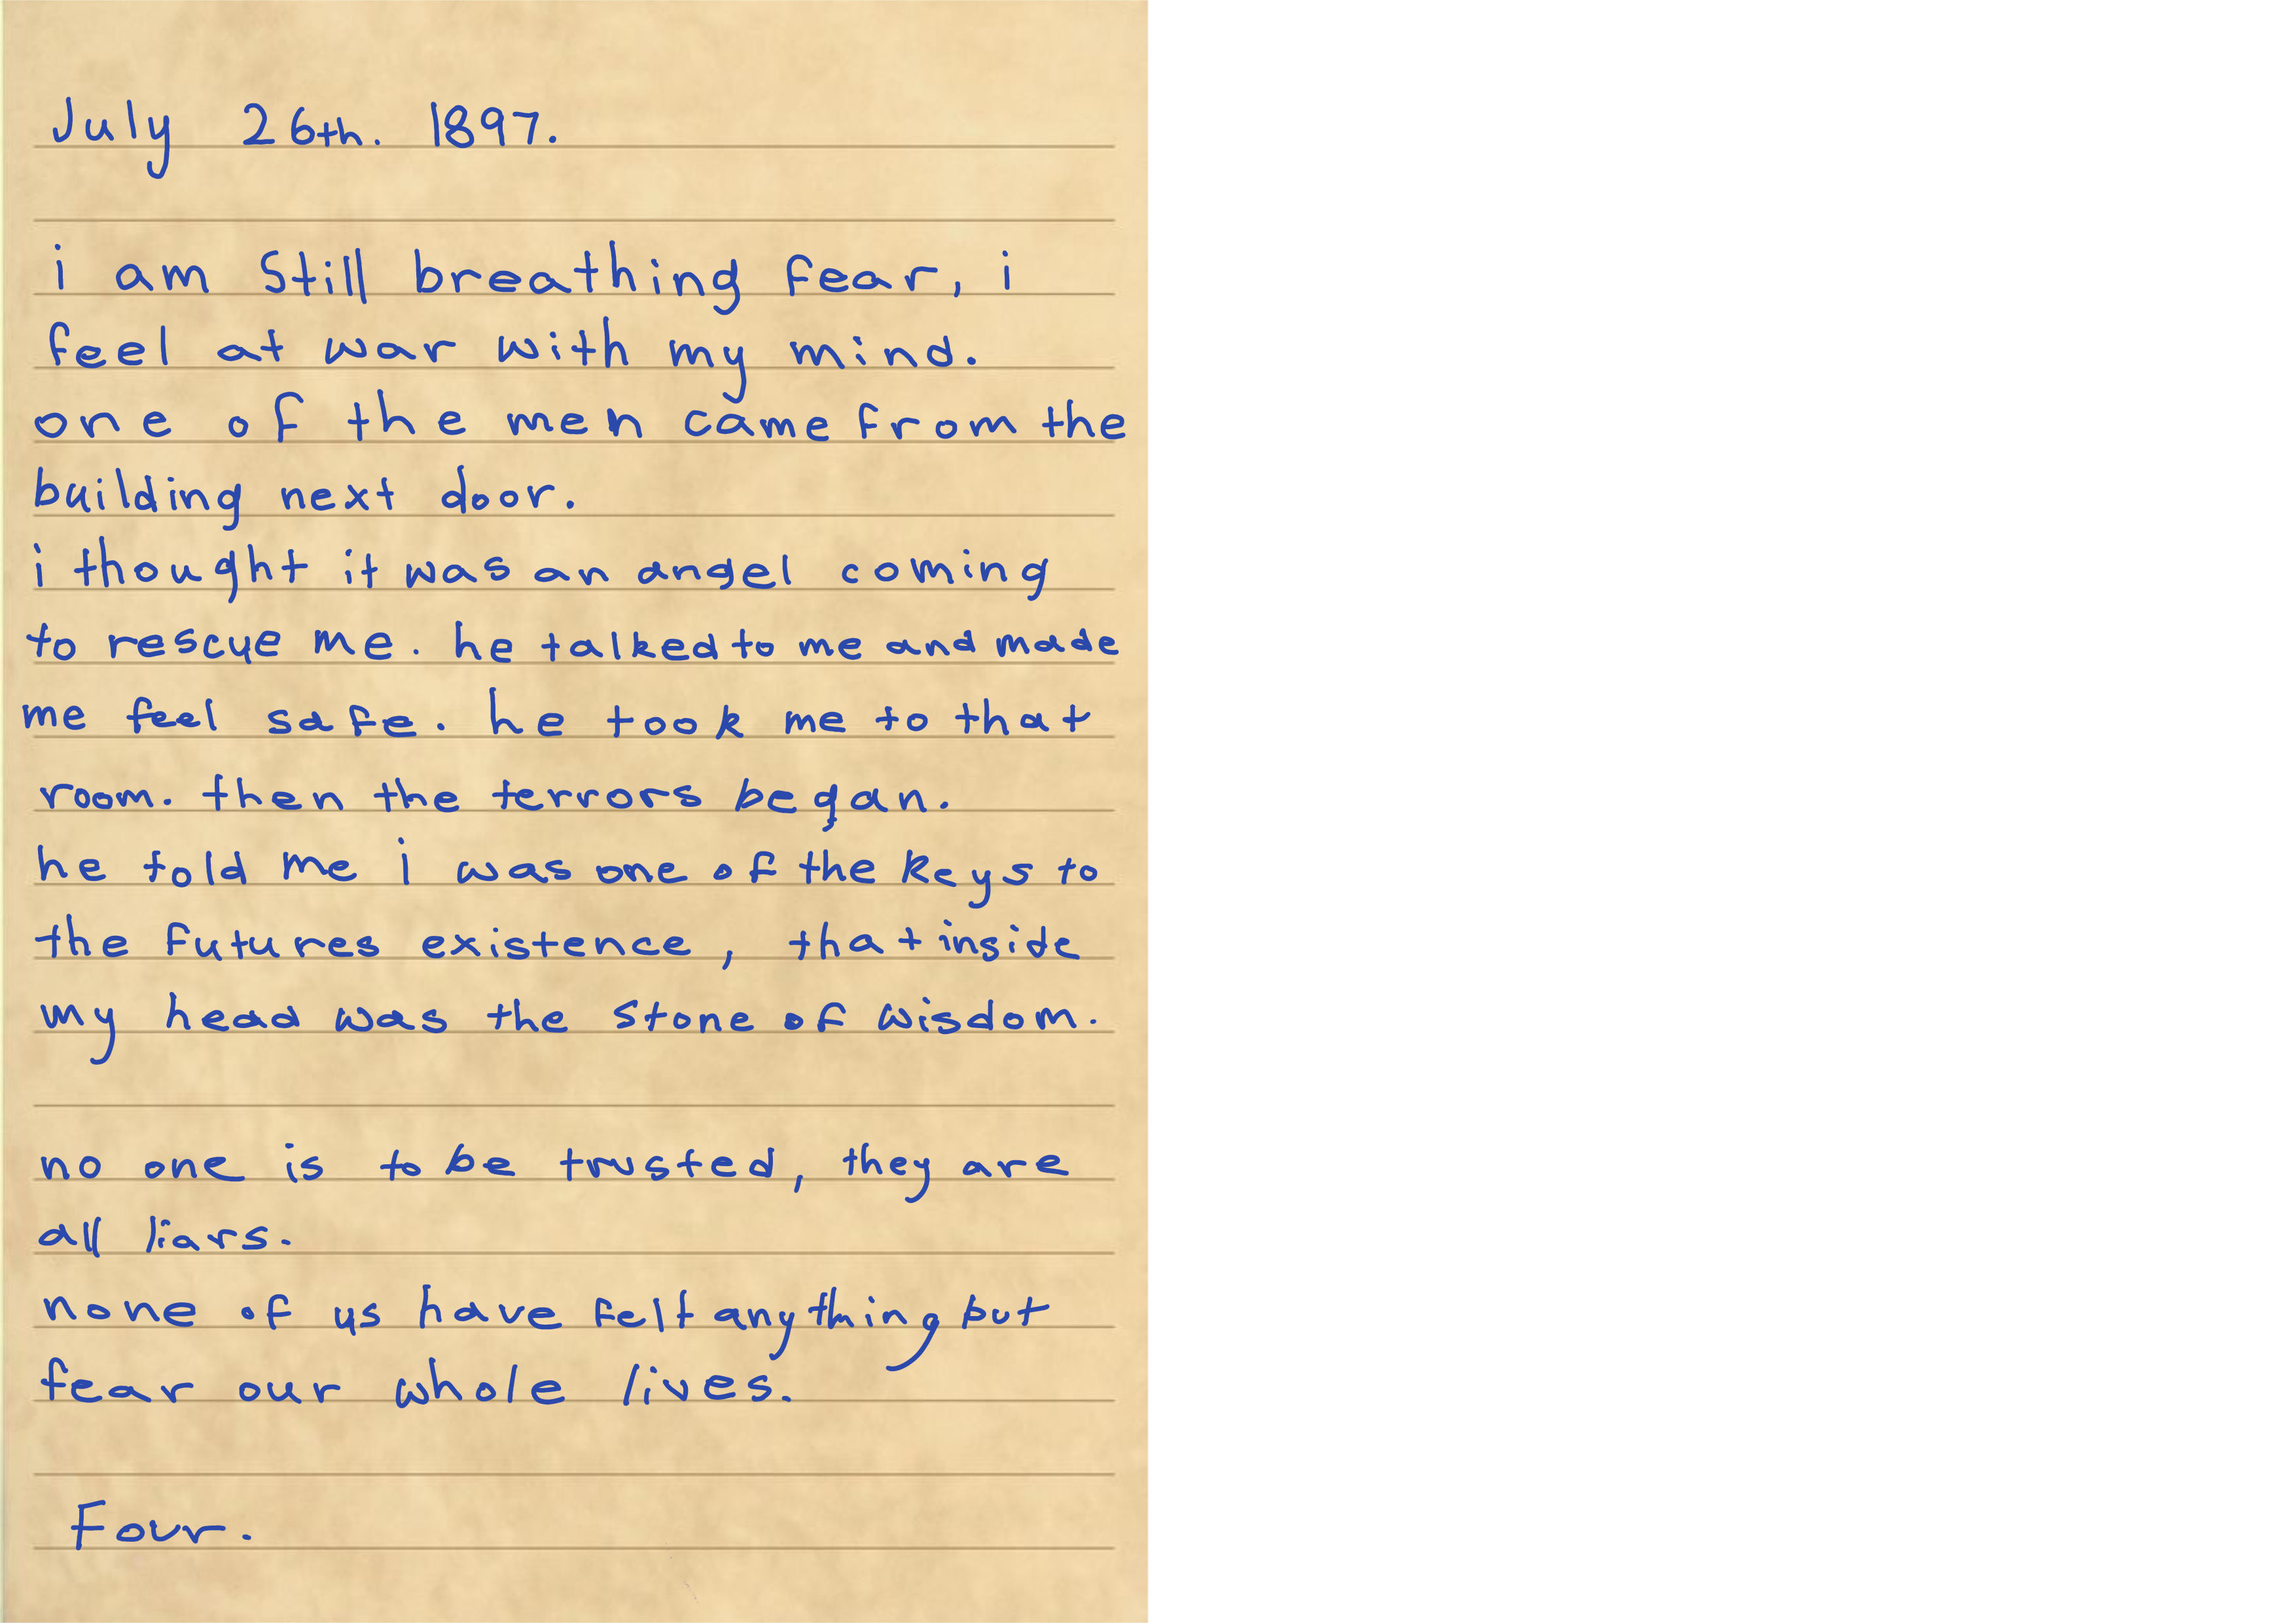 July 26th. 1897.
i am Still breathing fear, i
feel at war with my mind.
one of the men came from the
building next door.
i thought it was an angel coming
to rescue me. he talked to me and made
me feel safe. he took me to that
room. then the terrors began.
he told me i was one of the keys to
the futures existence, that inside
my head was the stone of wisdom.
no one is to be trusted, they are
all liars.
none of us have felt anything but
fear our whole lives.
Four.